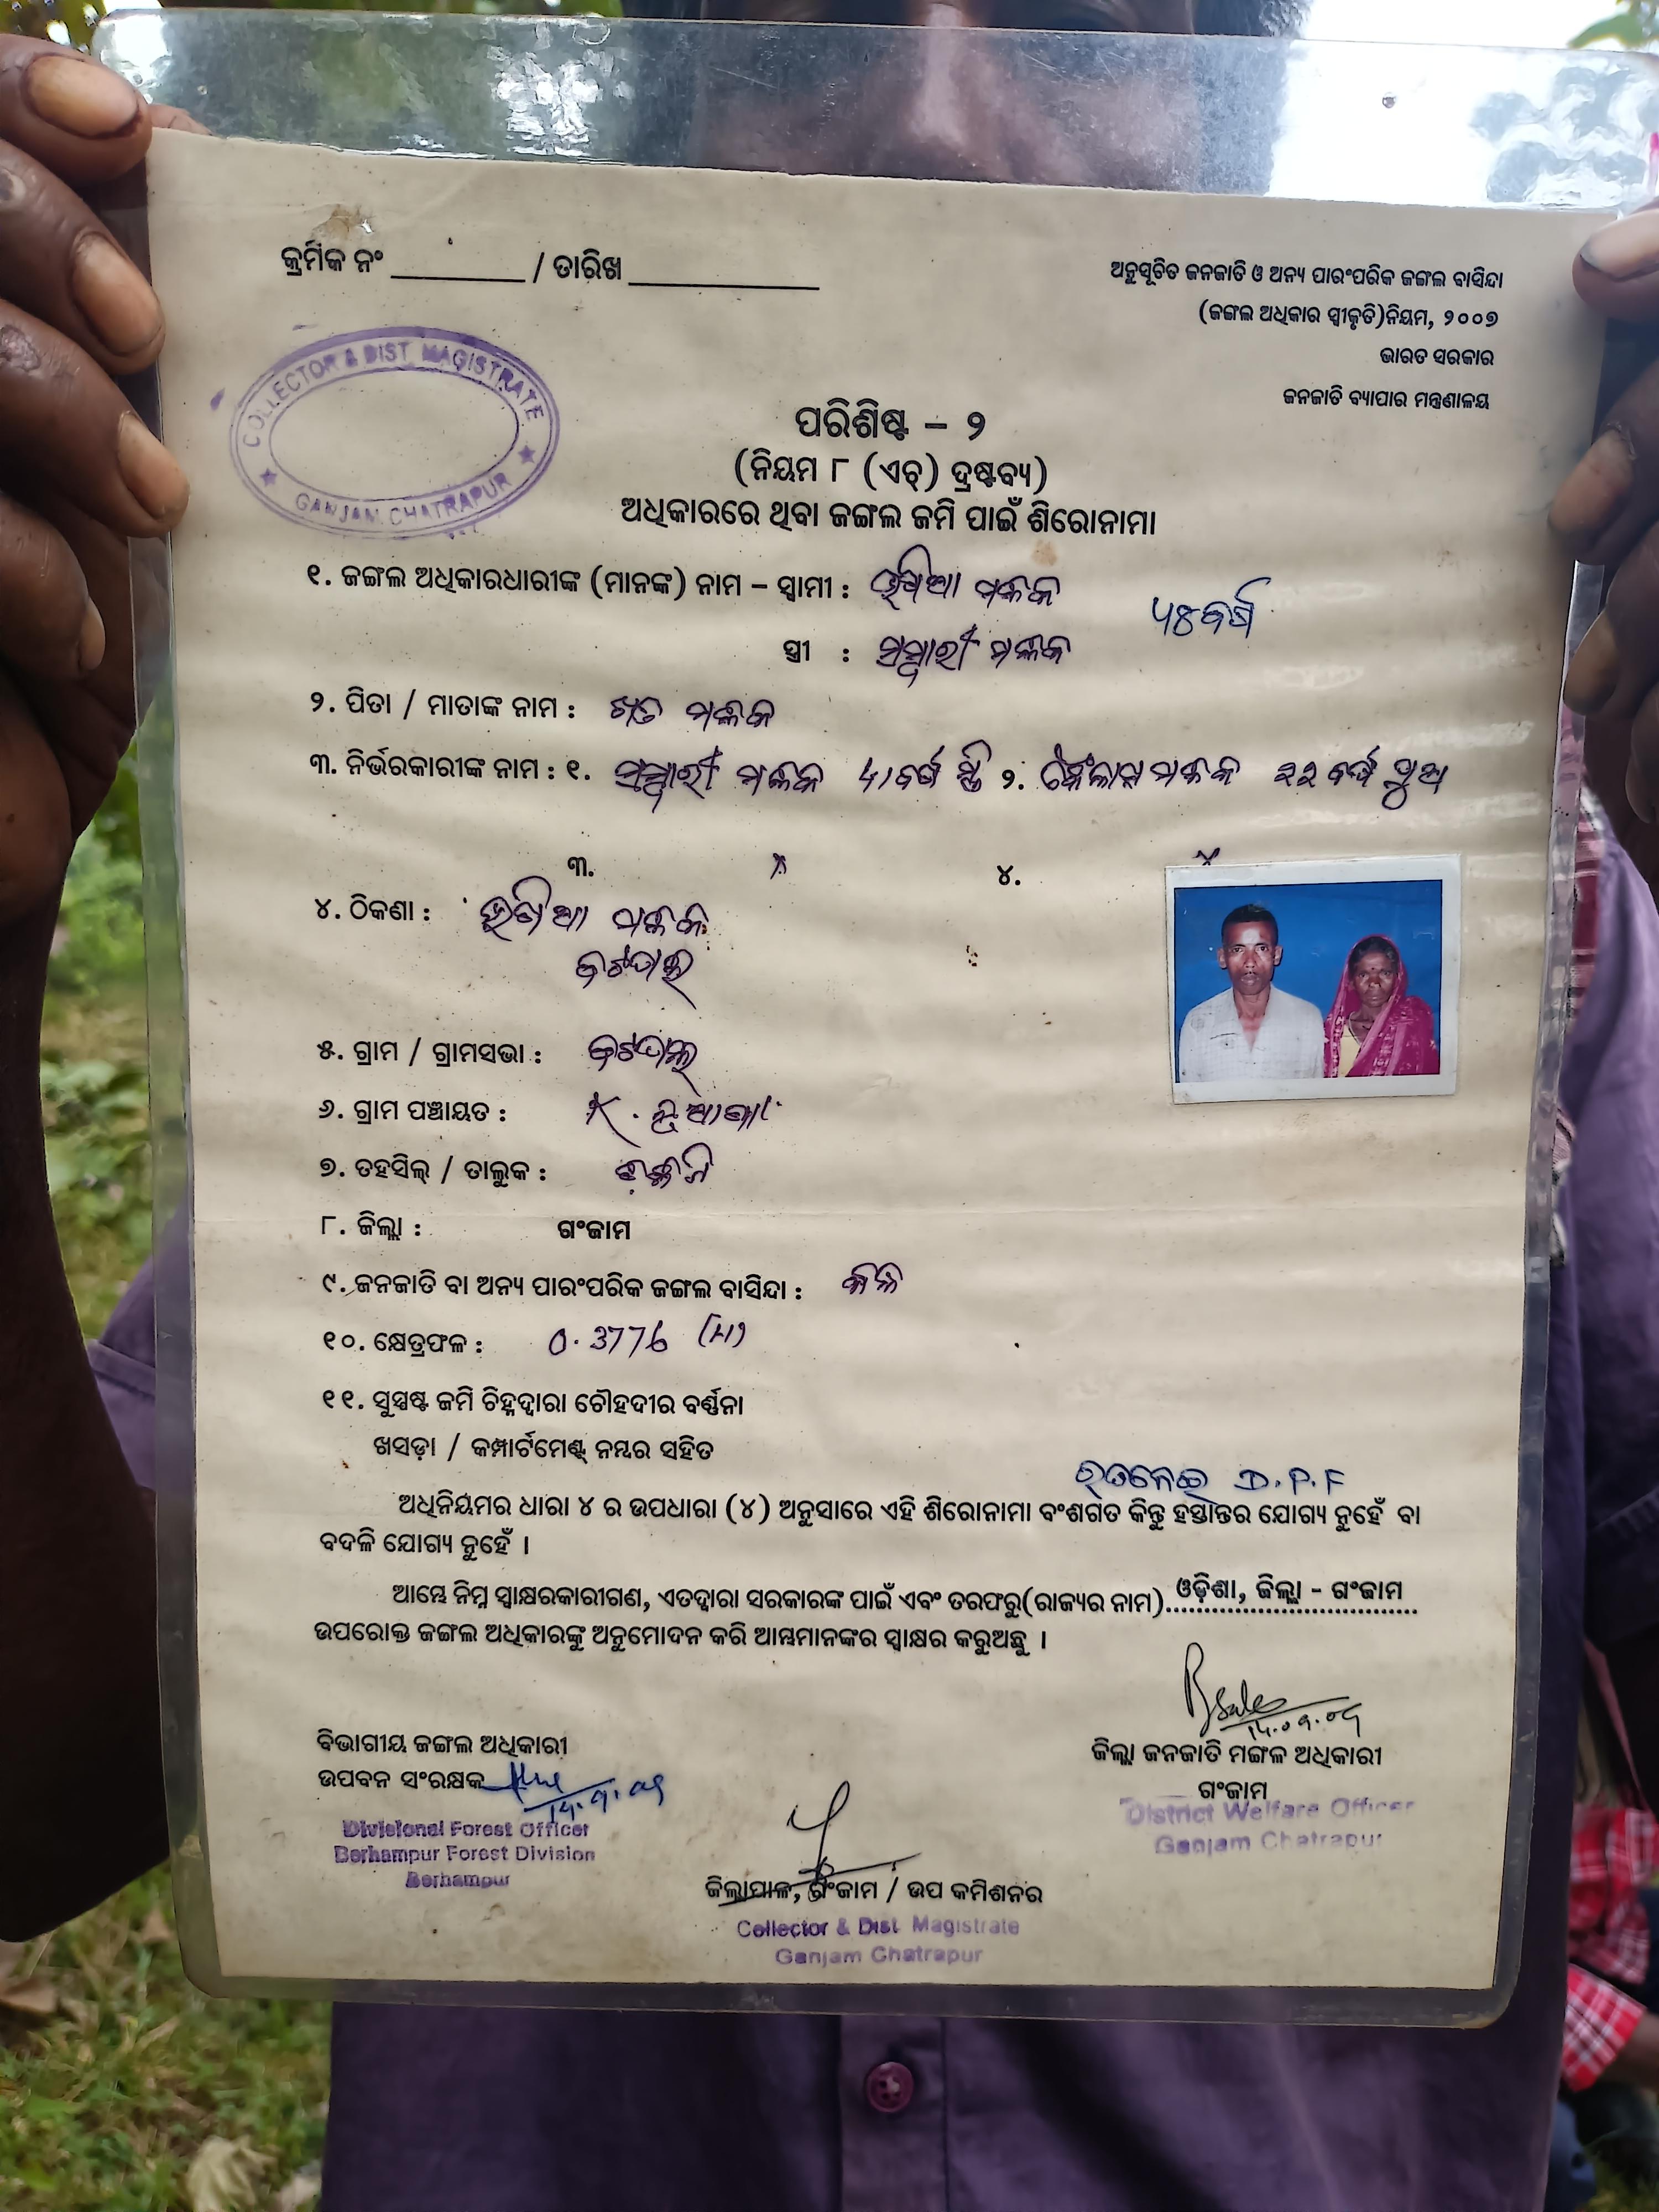 କ୍ରମିକ ନଂ ________ / ତାରିଖ ____________
ଅନୁସୂଚିତ ଜନଜାତି ଓ ଅନ୍ୟ ପାରଂପରିକ ଜଙ୍ଗଲ ବାସିନ୍ଦା
(ଜଙ୍ଗଲ ଅଧିକାର ସ୍ୱୀକୃତି)ନିୟମ, ୨୦୦୭
ଭାରତ ସରକାର
ଜନଜାତି ବ୍ୟାପାର ମନ୍ତ୍ରଣାଳୟ
COLLECTOR & DIST. MAGISTRATE
GANJAM. CHATRAPUR
ପରିଶିଷ୍ଟ – ୨
(ନିୟମ ୮ (ଏଚ୍) ଦ୍ରଷ୍ଟବ୍ୟ)
ଅଧିକାରରେ ଥିବା ଜଙ୍ଗଲ ଜମି ପାଇଁ ଶିରୋନାମା
୧. ଜଙ୍ଗଲ ଅଧିକାରଧାରୀଙ୍କ (ମାନଙ୍କ) ନାମ – ସ୍ୱାମୀ : ମଳିକ
୫୪ବର୍ଷ
ସ୍ତ୍ରୀ : ମଳିକ
୨. ପିତା / ମାତାଙ୍କ ନାମ : ମଳିକ
୩. ନିର୍ଭରକାରୀଙ୍କ ନାମ : ୧. ମଳିକ ବର୍ଷ ସ୍ତ୍ରୀ ୨. ମଳିକ ୨୨ ବର୍ଷ ପୁଅ
୩. ୪.
୪. ଠିକଣା : ମଳିକ
୫. ଗ୍ରାମ / ଗ୍ରାମସଭା :
୬. ଗ୍ରାମ ପଞ୍ଚାୟତ : K. ନୂଆଗାଁ
୭. ତହସିଲ୍ / ତାଲୁକ :
୮. ଜିଲ୍ଲା : ଗଂଜାମ
୯. ଜନଜାତି ବା ଅନ୍ୟ ପାରଂପରିକ ଜଙ୍ଗଲ ବାସିନ୍ଦା :
୧୦. କ୍ଷେତ୍ରଫଳ : 0.3776 (H)
୧୧. ସୁସ୍ପଷ୍ଟ ଜମି ଚିହ୍ନଦ୍ୱାରା ଚୌହଦୀର ବର୍ଣ୍ଣନା
ଖସଡ଼ା / କମ୍ପାର୍ଟମେଣ୍ଟ୍ ନମ୍ବର ସହିତ
D.P.F
ଅଧିନିୟମର ଧାରା ୪ ର ଉପଧାରା (୪) ଅନୁସାରେ ଏହି ଶିରୋନାମା ବଂଶଗତ କିନ୍ତୁ ହସ୍ତାନ୍ତର ଯୋଗ୍ୟ ନୁହେଁ ବା
ବଦଳି ଯୋଗ୍ୟ ନୁହେଁ ।
ଆମ୍ଭେ ନିମ୍ନ ସ୍ୱାକ୍ଷରକାରୀଗଣ, ଏତଦ୍ୱାରା ସରକାରଙ୍କ ପାଇଁ ଏବଂ ତରଫରୁ(ରାଜ୍ୟର ନାମ) ଓଡ଼ିଶା, ଜିଲ୍ଲା - ଗଂଜାମ
ଉପରୋକ୍ତ ଜଙ୍ଗଲ ଅଧିକାରଙ୍କୁ ଅନୁମୋଦନ କରି ଆମ୍ଭମାନଙ୍କର ସ୍ୱାକ୍ଷର କରୁଅଛୁ ।
ବିଭାଗୀୟ ଜଙ୍ଗଲ ଅଧିକାରୀ
ଉପବନ ସଂରକ୍ଷକ
Divisional Forest Officer
Berhampur Forest Division
Berhampur
ଜିଲ୍ଲା ଜନଜାତି ମଙ୍ଗଳ ଅଧିକାରୀ
ଗଂଜାମ
District Welfare Officer
Ganjam Chatrapur
ଜିଲ୍ଲାପାଳ, ଗଂଜାମ / ଉପ କମିଶନର
Collector & Dist. Magistrate
Ganjam Chatrapur